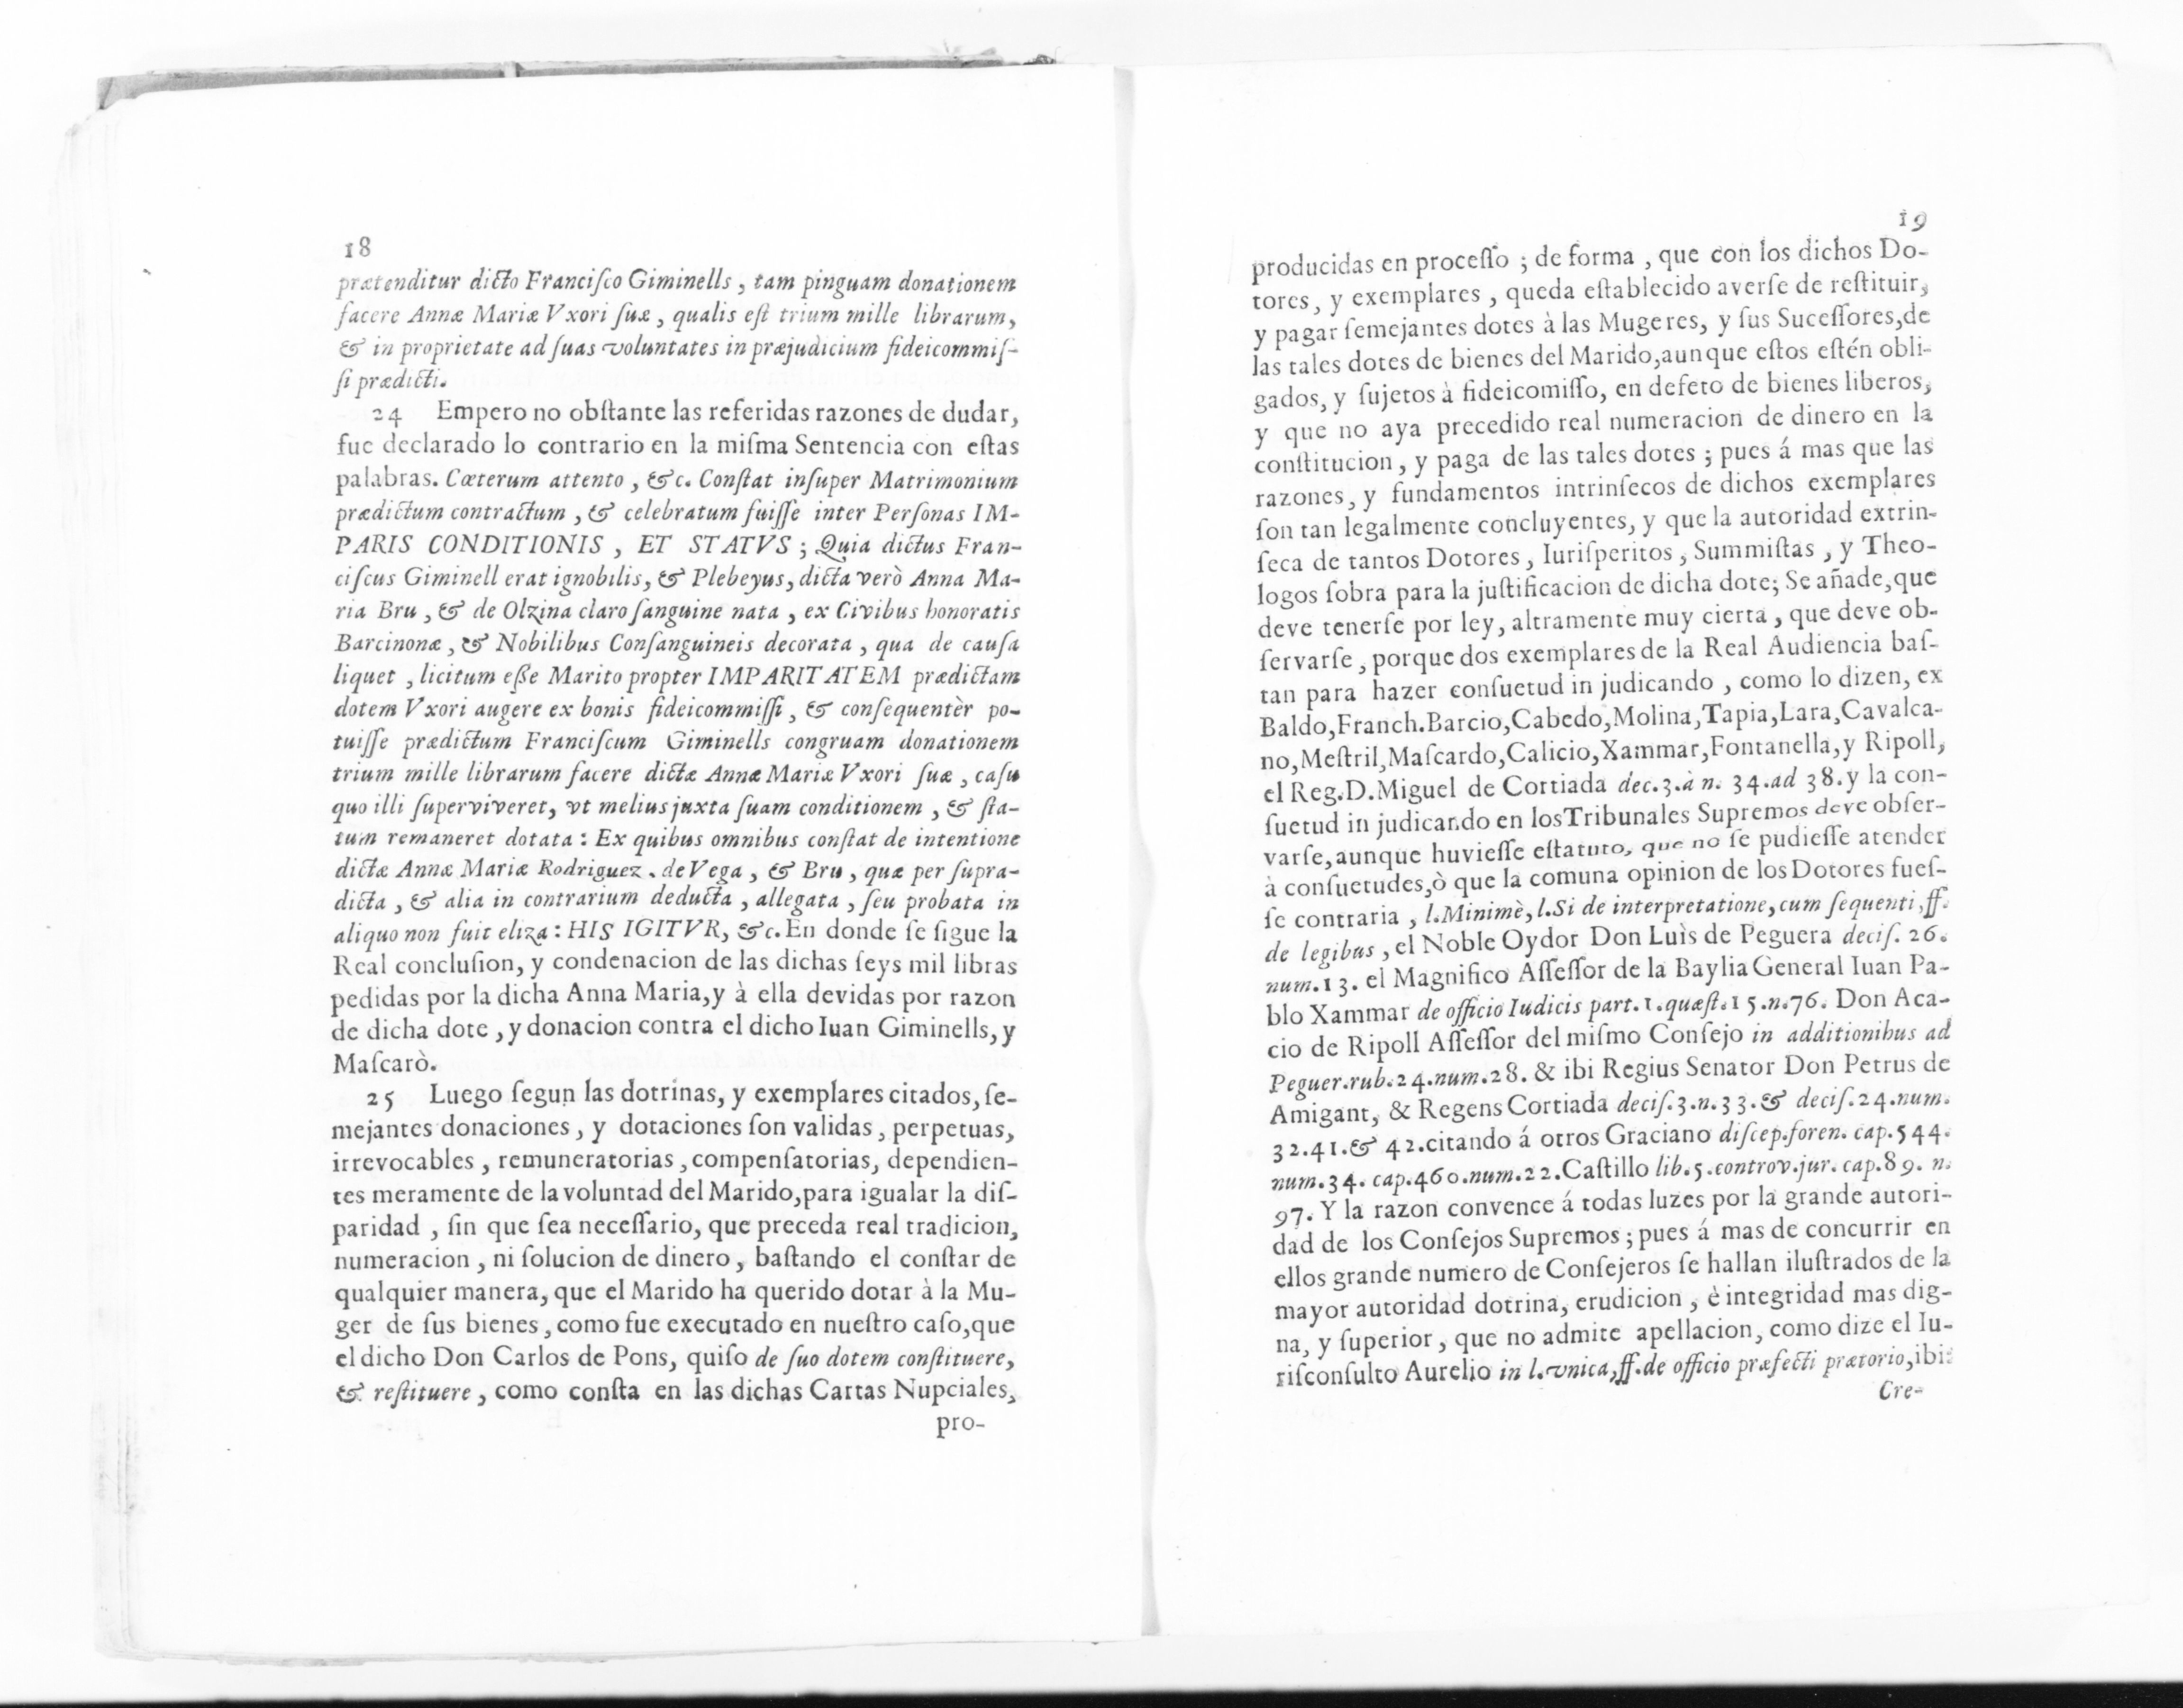 18
prætenditur dicto Franciſco Giminells , tam pinguam donationem
facere Annæ Mariæ Vxori ſuæ , qualis eſt trium mille librarum,
& in proprietate ad ſuas voluntates in præjudicium fideicommiſ-
ſi prædicti.
24 Empero no obſtante las referidas razones de dudar,
fue declarado lo contrario en la miſma Sentencia con eſtas
palabras. Cœterum attento , &c. Conſtat inſuper Matrimonium
prædictum contractum , & celebratum fuiſſe inter Perſonas IM-
PARIS CONDITIONIS , ET STATVS ; Quia dictus Fran-
ciſcus Giminell erat ignobilis, & Plebeyus, dicta verò Anna Ma-
ria Bru , & de Olzina claro ſanguine nata , ex Civibus honoratis
Barcinonæ , & Nobilibus Conſanguineis decorata , qua de cauſa
liquet , licitum eſſe Marito propter IMPARITATEM prædictam
dotem Vxori augere ex bonis fideicommiſſi , & conſequentèr po-
tuiſſe prædictum Franciſcum Giminells congruam donationem
trium mille librarum facere dictæ Annæ Mariæ Vxori ſuæ , caſu
quo illi ſuperviveret, vt melius juxta ſuam conditionem , & ſta-
tum remaneret dotata : Ex quibus omnibus conſtat de intentione
dictæ Annæ Mariæ Rodriguez . de Vega , & Bru , quæ per ſupra-
dicta , & alia in contrarium deducta , allegata , ſeu probata in
aliquo non fuit eliza : HIS IGITVR, &c. En donde ſe ſigue la
Real concluſion, y condenacion de las dichas ſeys mil libras
pedidas por la dicha Anna Maria,y à ella devidas por razon
de dicha dote , y donacion contra el dicho Iuan Giminells, y
Maſcarò.
25 Luego ſegun las dotrinas, y exemplares citados, ſe-
mejantes donaciones , y dotaciones ſon validas , perpetuas,
irrevocables , remuneratorias , compenſatorias, dependien-
tes meramente de la voluntad del Marido,para igualar la diſ-
paridad , ſin que ſea neceſſario, que preceda real tradicion,
numeracion , ni ſolucion de dinero , baſtando el conſtar de
qualquier manera, que el Marido ha querido dotar à la Mu-
ger de ſus bienes , como fue executado en nueſtro caſo,que
el dicho Don Carlos de Pons, quiſo de ſuo dotem conſtituere,
& reſtituere , como conſta en las dichas Cartas Nupciales,
pro-
19
producidas en proceſſo ; de forma , que con los dichos Do-
tores, y exemplares , queda eſtablecido averſe de reſtituir,
y pagar ſemejantes dotes à las Mugeres, y ſus Suceſſores,de
las tales dotes de bienes del Marido,aunque eſtos eſtén obli-
gados, y ſujetos à fideicomiſſo, en defeto de bienes liberos,
y que no aya precedido real numeracion de dinero en la
conſtitucion , y paga de las tales dotes ; pues á mas que las
razones, y fundamentos intrinſecos de dichos exemplares
ſon tan legalmente concluyentes, y que la autoridad extrin-
ſeca de tantos Dotores , Iuriſperitos , Summiſtas , y Theo-
logos ſobra para la juſtificacion de dicha dote; Se añade,que
deve tenerſe por ley, altramente muy cierta , que deve ob-
ſervarſe , porque dos exemplares de la Real Audiencia baſ-
tan para hazer conſuetud in judicando , como lo dizen, ex
Baldo,Franch.Barcio,Cabedo,Molina,Tapia,Lara,Cavalca-
no,Meſtril,Maſcardo,Calicio,Xammar,Fontanella,y Ripoll,
el Reg.D.Miguel de Cortiada dec.3.à n. 34.ad 38.y la con-
ſuetud in judicando en los Tribunales Supremos deve obſer-
varſe,aunque huvieſſe eſtatuto, que no ſe pudieſſe atender
à conſuetudes,ò que la comuna opinion de los Dotores fueſ-
ſe contraria , l.Minimè,l.Si de interpretatione,cum ſequenti,ff.
de legibus , el Noble Oydor Don Luìs de Peguera deciſ. 26.
num.13. el Magnifico Aſſeſſor de la Baylia General Iuan Pa-
blo Xammar de officio Iudicis part.1.quæſt.15.n.76. Don Aca-
cio de Ripoll Aſſeſſor del miſmo Conſejo in additionibus ad
Peguer.rub.24.num.28. & ibi Regius Senator Don Petrus de
Amigant, & Regens Cortiada deciſ.3.n.33.& deciſ.24.num.
32.41.& 42.citando á otros Graciano diſcep.foren. cap.544.
num.34. cap.460.num.22.Caſtillo lib.5.controv.jur. cap.89. n.
97. Y la razon convence á todas luzes por la grande autori-
dad de los Conſejos Supremos ; pues á mas de concurrir en
ellos grande numero de Conſejeros ſe hallan iluſtrados de la
mayor autoridad dotrina, erudicion , è integridad mas dig-
na, y ſuperior , que no admite apellacion, como dize el Iu-
riſconſulto Aurelio in l.vnica,ff.de officio præfecti prætorio,ibi:
Cre-